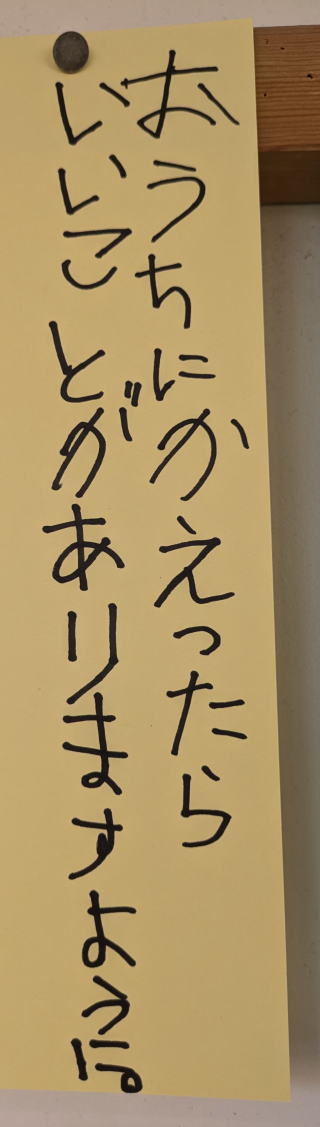 おうちにかえったら
いいことがありますように